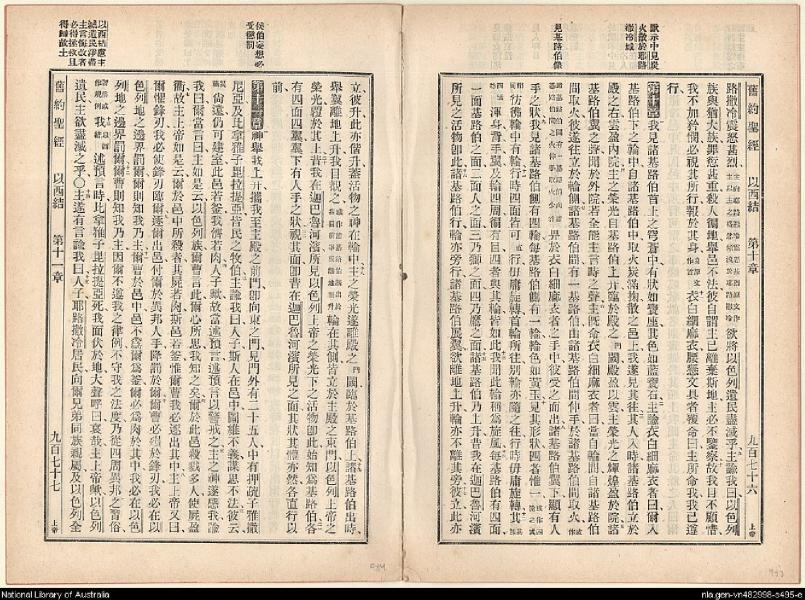 舊約聖經 以西結 第十章 九百七十六 上帝
路撒冷震怒甚烈 欲將以色列遺民盡滅乎主諭我曰以色列
族與猶大族罪愆甚重殺人徧地舉邑不法彼自謂主已離棄斯地主必不鑒察故我目不顧惜
我不加矜憫必視其所行報於其身 衣白細麻衣腰懸文具者覆命曰主所命我我已遵
行
第十章 我見諸基路伯首上之穹蒼中有狀如寶座其色如藍寶石主諭衣白細麻衣者曰爾入
基路伯下之輪中自諸基路伯中取火炭滿掬散之邑上我遂見其往其人入時諸基路伯立於
殿之右雲盈內院主之榮光自基路伯上升臨於殿之 閾殿盈以雲主榮光之輝煌盈於院諸
基路伯翼之聲聞於外院若全能主言時之聲主既命衣白細麻衣者曰當自輪間自諸基路伯
間取火彼遂往立於輪側諸基路伯間有一基路伯由諸基路伯間伸手於諸基路伯間取火
畀於衣白細麻衣者之手中彼受之而出諸基路伯翼下顯有人
手之狀我見諸基路伯側有四輪每基路伯側有一輪輪色如黃玉見其形狀四者惟一
彷彿輪中有輪行時四面皆可行毋庸旋轉首輪所往別輪亦隨之往行時毋庸旋轉其
渾身背手翼及輪四周徧有目四者與其輪皆如此我聞此輪稱為旋風每基路伯有四面
一面基路伯之面二面人之面三乃獅之面四乃鷹之面諸基路伯乃上升昔我在迦巴魯河濱
所見之活物卽此諸基路伯行輪亦旁行諸基路伯展翼欲離地上升輪亦不離其旁彼立此亦
默示中見炭
火散於耶路
撒冷城
見基路伯儀
立彼升此亦偕升蓋活物之神在輪中主之榮光遂離殿之 閾臨於基路伯上諸基路伯出時
舉翼離地上升我目覩之 輪在其側皆立於主殿之東門以色列上帝之
榮光覆於其上昔我在迦巴魯河濱所見以色列上帝之榮光下之活物卽此始知為基路伯各
有四面四翼翼下有人手之狀視其面卽昔在迦巴魯河濱所見之面其狀其體亦然各直行以
前
第十一章 神舉我上升攜我至主殿之前門卽向東之門見門外有二十五人中有押疏子雅撒
尼亞及比拿雅子毘拉提亞皆民之牧伯主諭我曰人子斯人在邑中圖維不義謀思不法彼云
尚遠仍可建室此邑若釜我儕若肉人子歟故當述預言述預言以警戒之主之神遂感我諭
我曰爾當言曰主如是云以色列族爾曹言此爾心所思我知之矣爾於此邑殺戮多人使屍盈
衢故主上帝如是云爾於邑中所殺者其屍若肉斯邑若釜惟爾曹我必逐出其中主上帝又曰
爾懼鋒刃我必使鋒刃臨爾逐爾出邑付爾於異邦人手降罰於爾爾曹必殞於鋒刃我必在以
色列地之邊界罰爾爾則知我乃主爾曹於邑中邑不為爾為釜爾必為肉於其中我必在以色
列地之邊界罰爾爾曹則知我乃主因爾不遵我之律例不守我之法度乃從四周異邦之習俗
我 述預言時比拿雅子毘拉提亞死我面伏於地大聲呼曰哀哉主上帝歟以色列
遺民主欲盡滅之乎〇主遂有言諭我曰人子耶路撒冷居民向爾兄弟同族親屬及以色列全
舊約聖經 以西結 第十一章 九百七十七 上帝
侯伯妄想必
受懲罰
以西結慮主
滅遺民淨盡
主言悔改者
必得拯救且
得歸故土
National Library of Australia
nla.gen-vn482998-s495-e